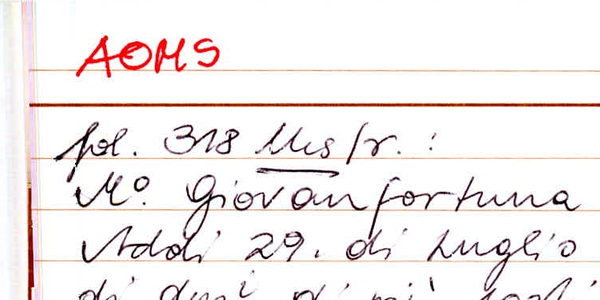 AOMS
fol. 318 Ms/r. :
Mo. Giovanfortuna
Addi 29. di Luglio
di di più